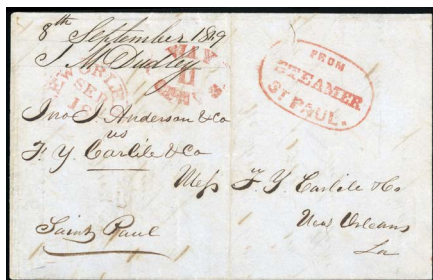 8th September 1849
J M Dudley
WAY
11
NEW ORLE
SEP
FROM
STEAMER
ST PAUL.
Jno J. Anderson & Co
us
F. Y. Carlile & Co
Mess F. Y. Carlile & Co
New Orleans
La
Saint Paul